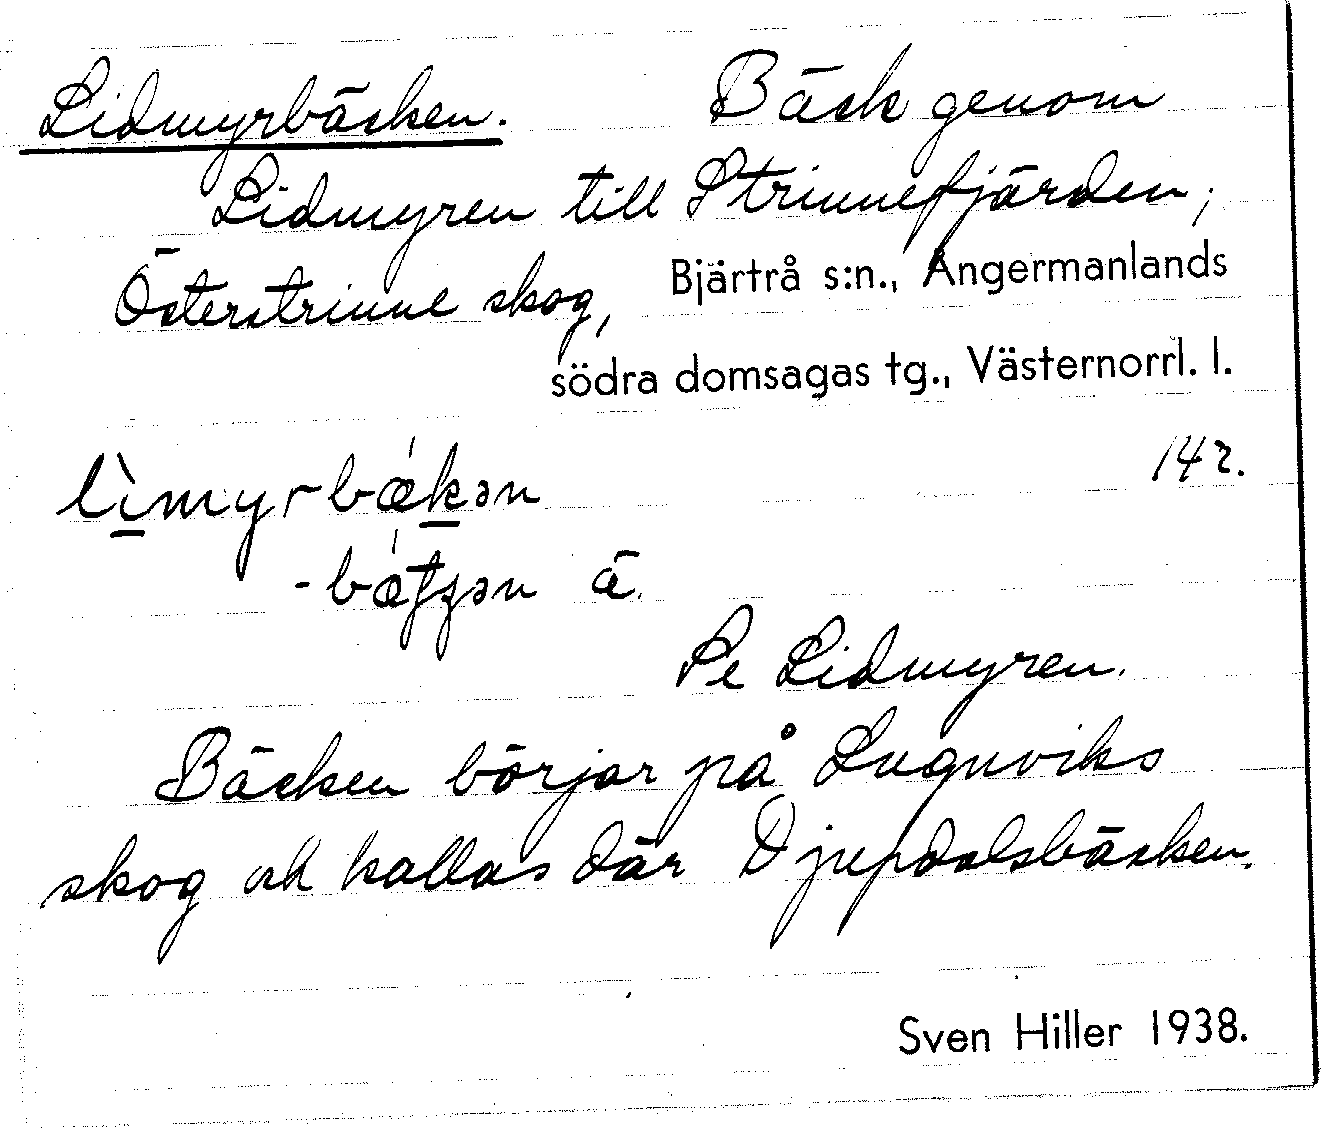 Lidmyrbäcken. Bäck genom
Lidmyren till Strinnefjärden,
Österstrinne skog, Bjärtrå s:n., Ångermanlands
södra domsagas tg., Västernorrl. l.
lìmyrbǽkən 142.
-bǽtʃən ä.
Se Lidmyren.
Bäcken börjar på Lugnviks
skog och kallas där Djupdalsbäcken.
Sven Hiller 1938.